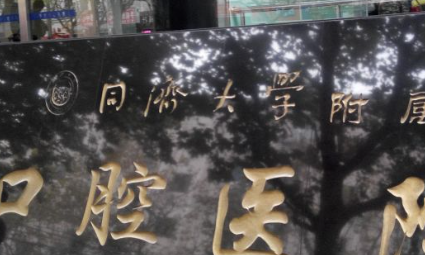 同濟大學附屬
口腔医院